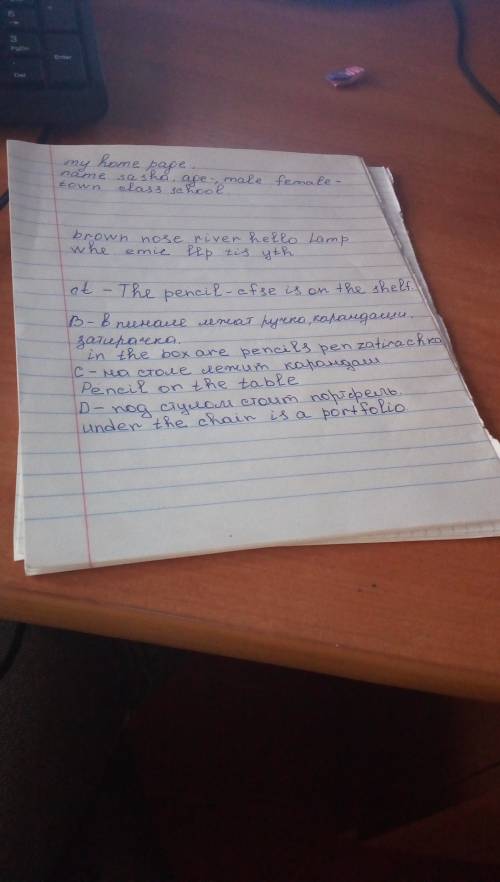 my home page.
name sasha. age-, male female-
town class school.
brown nose river hello lamp
whe emic llp tis yth
A - The pencil-cfse is on the shelf.
В - в пинале лежат ручка, карандаши.
затирачка.
in the box are pencils pen zatirachka
С - на столе лежит карандаш
Pencil on the table
D - под стулом стоит портфель.
under the chair is a portfolio